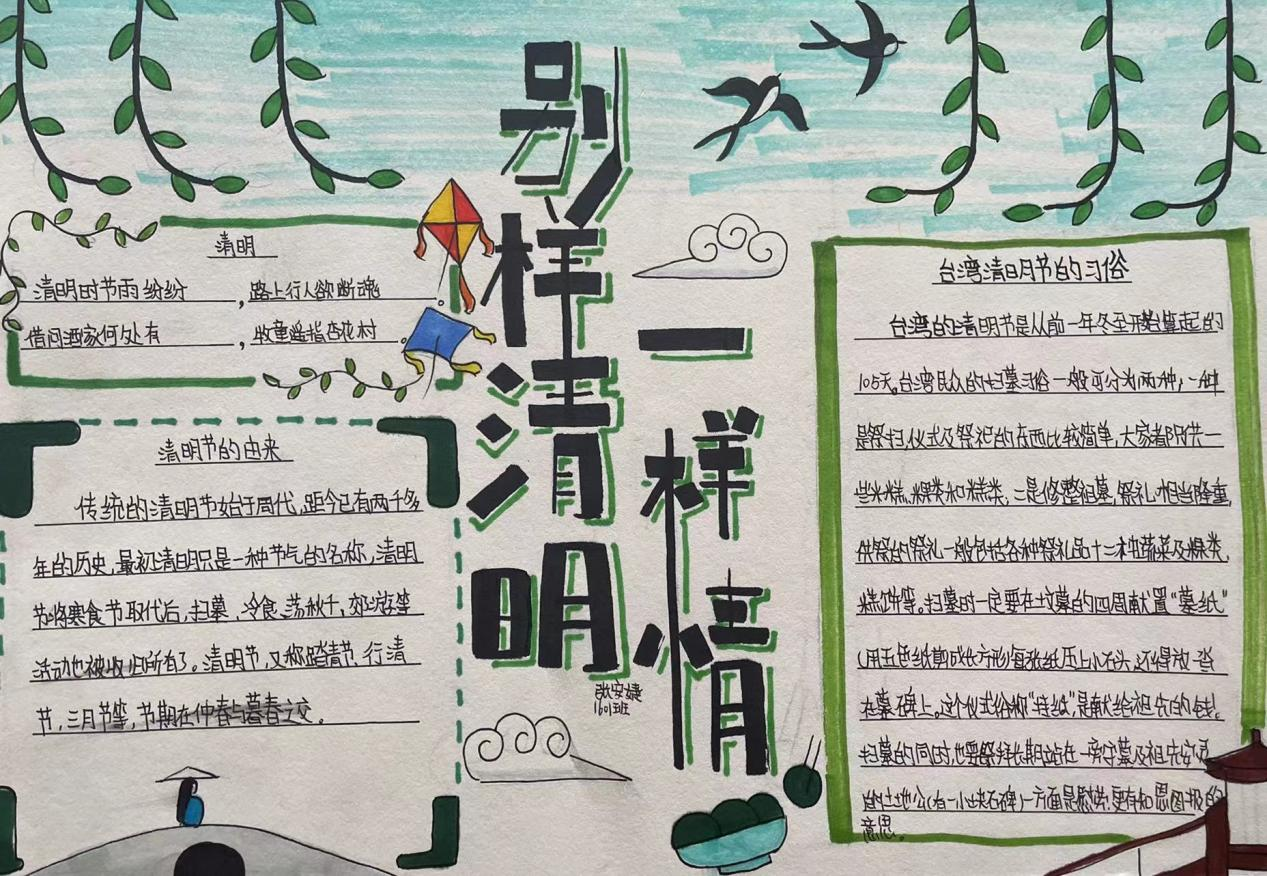 别样清明
一样情
张安婕
1601班
清明
清明时节雨纷纷,路上行人欲断魂。
借问酒家何处有,牧童遥指杏花村。
清明节的由来
传统的清明节始于周代,距今已有两千多
年的历史,最初清明只是一种节气的名称,清明
节将寒食节取代后,扫墓、冷食、荡秋千,郊游等
活动也被收归所有了。清明节,又称踏青节,行清
节,三月节等,节期在仲春与暮春之交。
台湾清明节的习俗
台湾的清明节是从前一年冬至开始算起的
105天。台湾民众的扫墓习俗一般可分为两种,一种
是祭扫,仪式及祭祀的东西比较简单,大家都供一
些米糕、粿类和糕类,二是修整祖墓,祭礼相当隆重,
供祭的祭礼一般包括各种祭礼品十二种蔬菜及粿类、
糕饼等。扫墓时一定要在坟墓的四周献置“墓纸”
(用五色纸剪成长方形每张纸压上小石头,还得放一沓
在墓碑上。这个仪式俗称“挂纸”,是献给祖先的钱。
扫墓的同时,也要祭拜长期站在一旁守墓及祖先安
的土地公(有一小块石碑)一方面是慰劳,更有知恩图报的
意思。